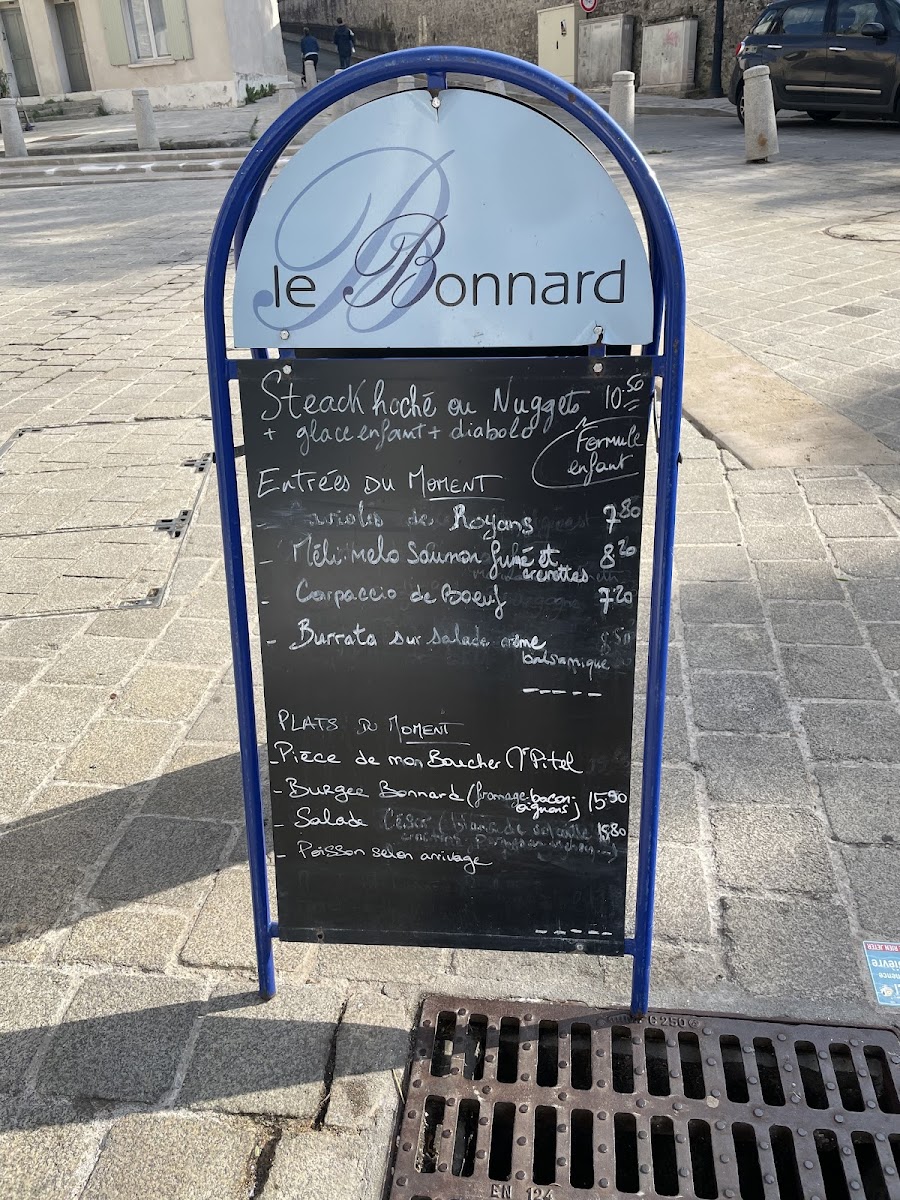 le Bonnard
Steack haché ou Nuggets 10.50
+ glace enfant + diabolo
Formule
enfant
Entrées DU MOMENT
- Raviolis de Royans 7.80
- Méli-melo Saumon fumé et 8.20
crevettes
- Carpaccio de Boeuf 7.20
- Burrata sur salade crème 8.50
balsamique
PLATS DU MOMENT
- Pièce de mon Boucher Pitel
- Burger Bonnard (fromage-bacon- 15.90
oignons)
- Salade César ( 15.80
- Poisson selon arrivage
C250
EN 124
RIEN JETER